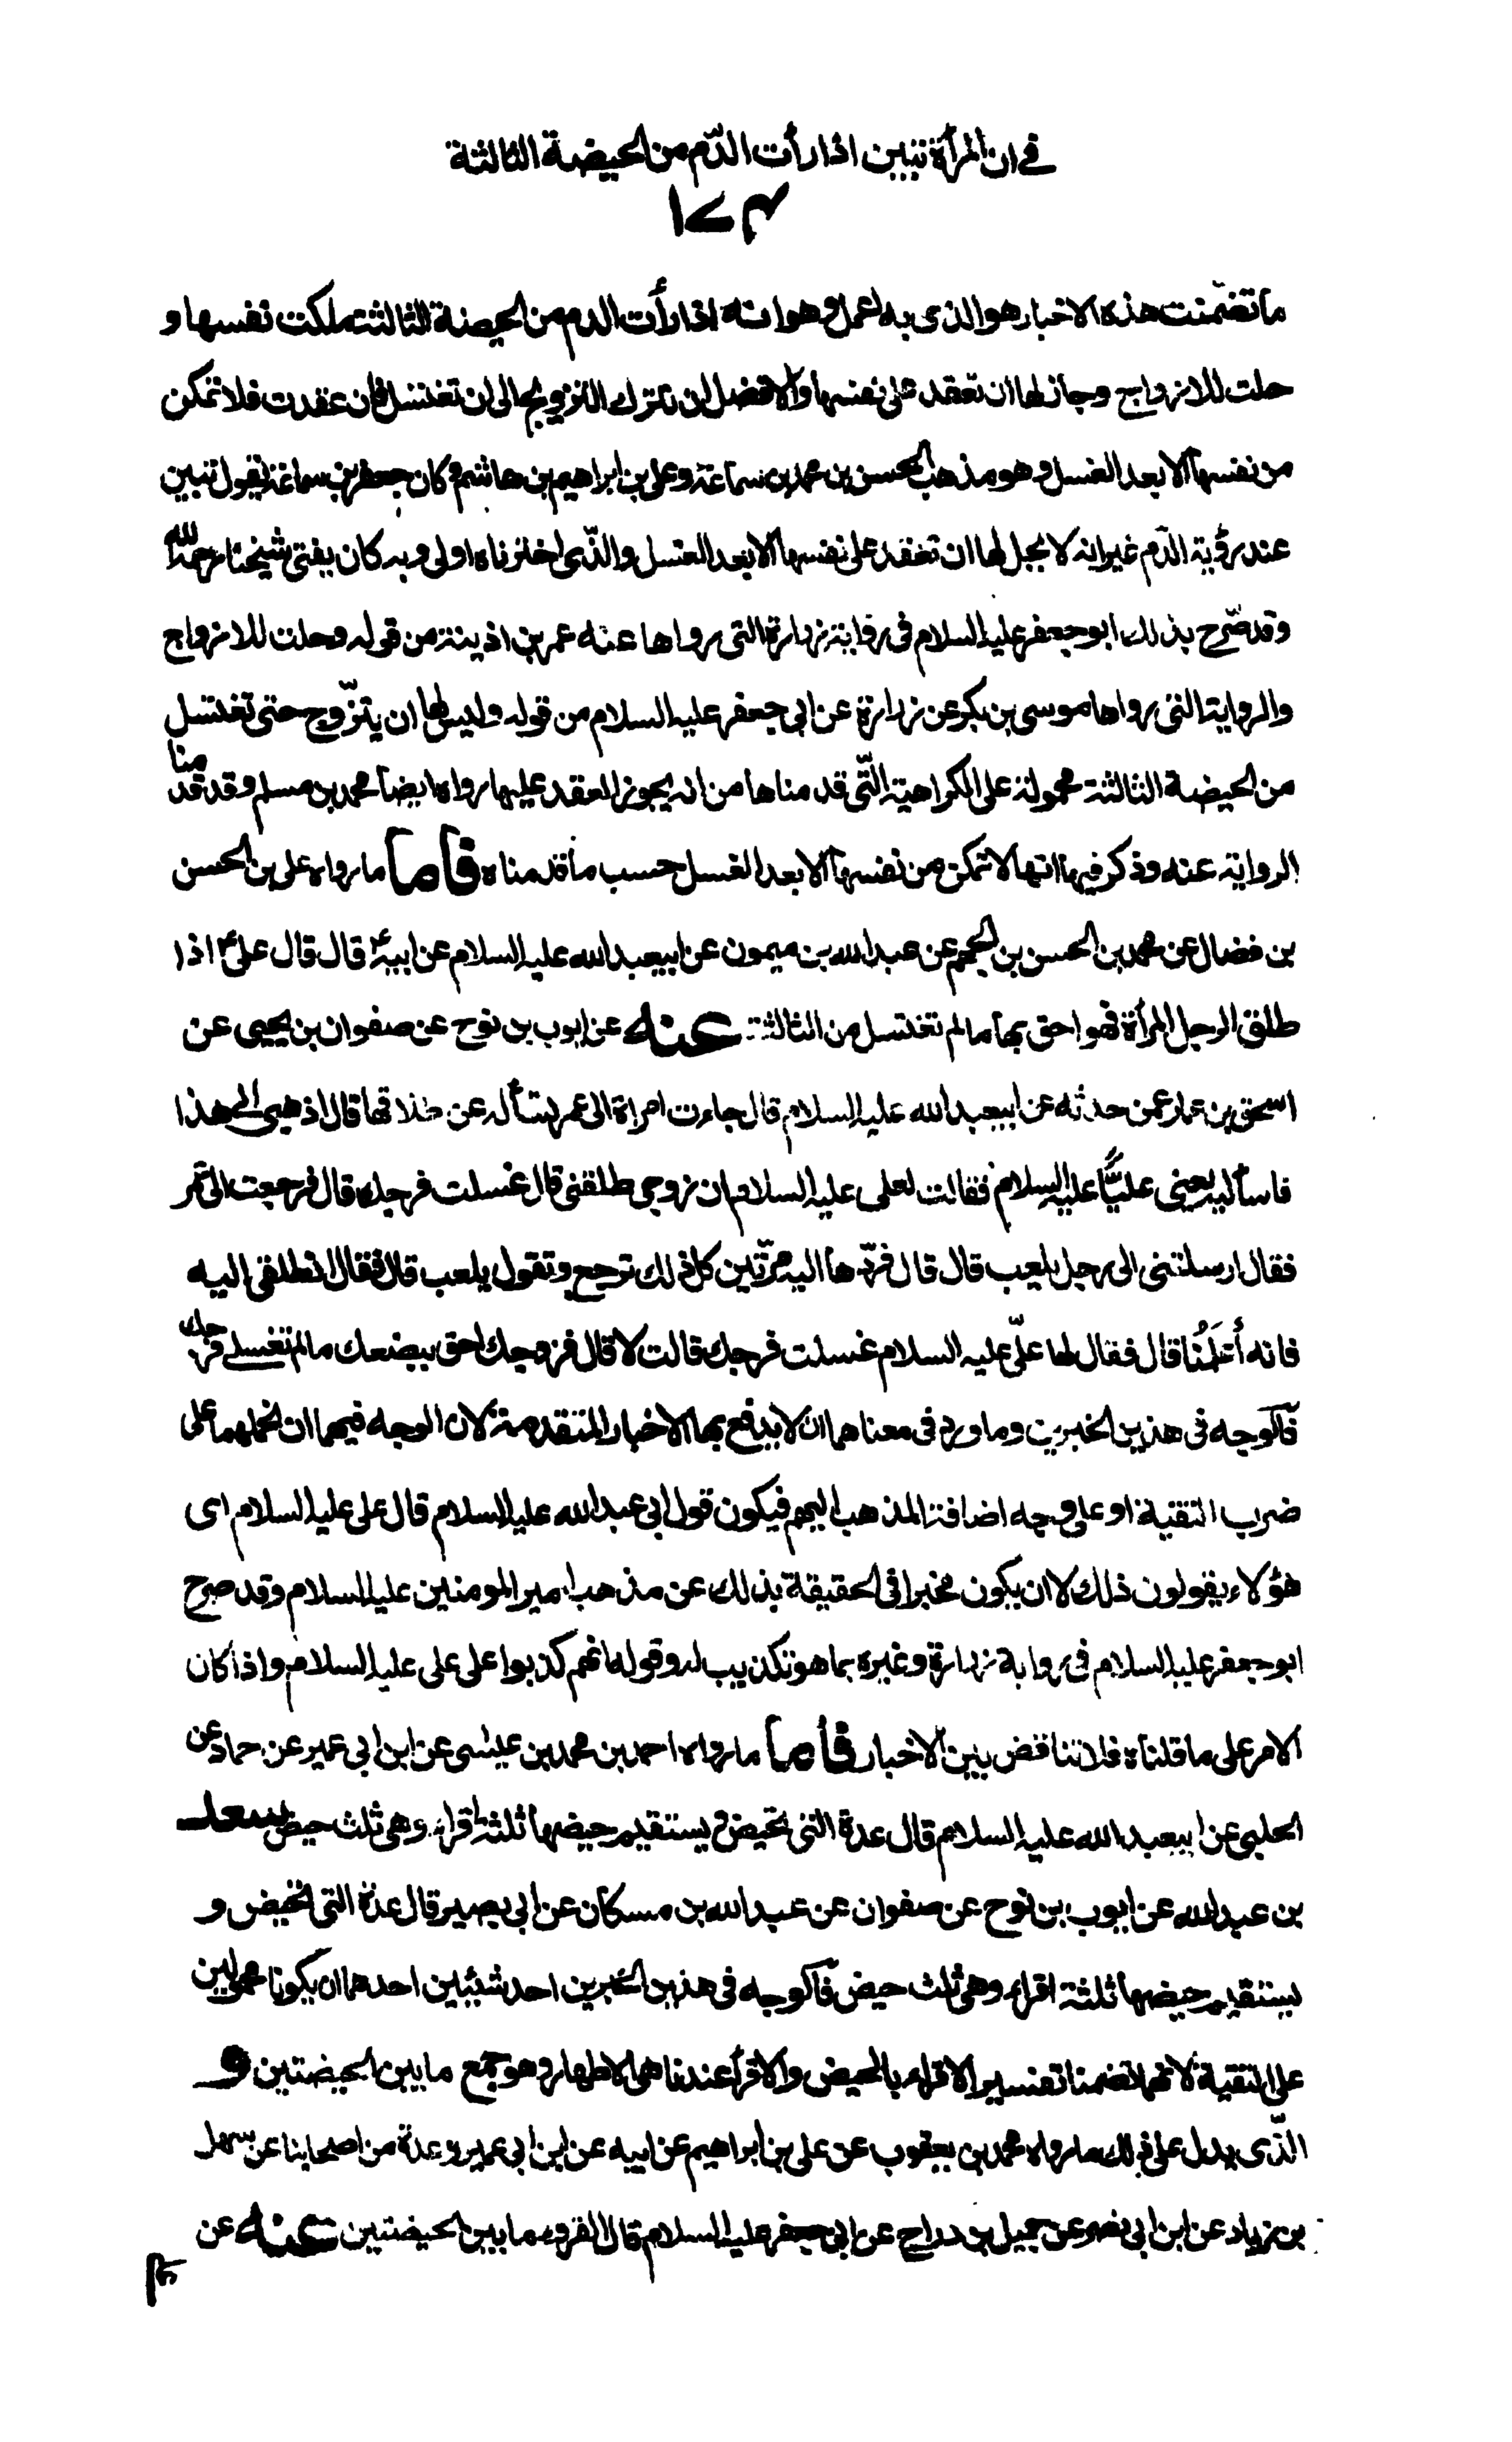 في ان المرأة تبين اذا رأت الدّم من الحيضة الثالثة
ما تضمّنت هذه الاخبار هو الذى به اعمل وهو انه اذا رأت الدم من الحيضة الثالثة ملكت نفسها و
حلت للازواج وجاز لها ان تعقد على نفسها والافضل ان تترك التزويج الى ان تغتسل فان عقدت فلا تمكن
من نفسها الا بعد الغسل وهو مذهب الحسن بن محمد بن سماعة وعلى بن ابراهيم بن هاشم وكان جعفر بن سماعة يقول تبين
عند رؤية الدّم غير انه لا يحل لها ان تعقد على نفسها الا بعد الغسل والذّى اخترناه اولى وبه كان يفتى شيخنا رحمه الله
وقد صّرح بذلك ابو جعفر عليه السلام فى رواية زرارة التى رواها عنه عمر بن اذينة من قوله وحلت للازواج
والرواية التى رواها موسى بن بكر عن زرارة عن ابى جعفر عليه السلام من قوله وليس لها ان يتزّوج حتى تغتسل
من الحيضة الثالثة محمولة على الكراهية التّى قدمناها من انه يجوز العقد عليها رواه ايضا محمد بن مسلم وقد قدمنا
الرواية عنه وذكر فيها انها لا تمكن من نفسها الا بعد الغسل حسب ما قدمناه فأما ما رواه على بن الحسن
بن فضال عن محمد بن الحسن بن الجهم عن عبد الله بن ميمون عن ابيعبد الله عليه السلام عن ابيه ع قال قال على ع اذا
طلق الرجل المرأة فهو احق بها ما لم تغتسل من الثالثة عنه عن ايوب بن نوح عن صفوان بن يحيى عن
اسحق بن عمار عمن حدثه عن ابيعبد الله عليه السلام قال جاءت امراة الى عمر تسأله عن طلاقها قال اذهبى الى هذا
فاسأليه يعنى عليًّا عليه السلام فقالت لعلى عليه السلام ان زوجى طلقنى قال غسلت فرجك قال فرجعت الى عمر
فقال ارسلتنى الى رجل يلعب قال قال فردّها اليه مرّتين كل ذلك ترجع وتقول يلعب قال فقال انطلقى اليه
فانه أَعْلَمُنا قال فقال لها علىّ عليه السلام غسلت فرجك قالت لا قال فزوجك احق ببضعك ما لم تغسلى فرجك
فالوجه فى هذين الخبرين وما ورد فى معناهما ان لا يدفع بهما الاخبار المتقدمة لان الوجه فيهما ان نحملهما على
ضرب التقية او على وجه اضافة المذهب اليهم فيكون قول ابى عبد الله عليه السلام قال على عليه السلام اى
هؤلاء يقولون ذلك لا ان يكون مخبرا فى الحقيقة بذلك عن مذهب امير المومنين عليه السلام وقد صرح
ابو جعفر عليه السلام فى رواية زرارة وغيره بما هو تكذيب له وقوله انهم كذبوا على على عليه السلام واذا كان
الامر على ما قلناه فلا تناقض بين الاخبار فأما ما رواه احمد بن محمد بن عيسى عن ابن ابى عمير عن حماد عن
الحلبى عن ابيعبد الله عليه السلام قال عدة التى تحيض ويستقيم حيضها ثلثة اقراء وهى ثلث حيض سعد
بن عبد الله عن ايوب بن نوح عن صفوان عن عبد الله بن مسكان عن ابى بصير قال عدة التى تحيض و
يستقيم حيضها ثلثة اقراء وهى ثلث حيض فالوجه فى هذين الخبرين احد شيئين احدهما ان يكونا محمولين
على التقية لانهما تضمنا تفسير الاقراء بالحيض والاقرأ عندنا هى الاطهار وهو جمع ما بين الحيضتين و
الذّى يدل على ذلك ما رواه محمد بن يعقوب عن على بن ابراهيم عن ابيه عن ابن ابى عمير وعدة من اصحابنا عن سهل
بن زياد عن ابن ابى نصر عن جميل بن دراج عن ابى جعفر عليه السلام قال القروء ما بين الحيضتين عنه عن